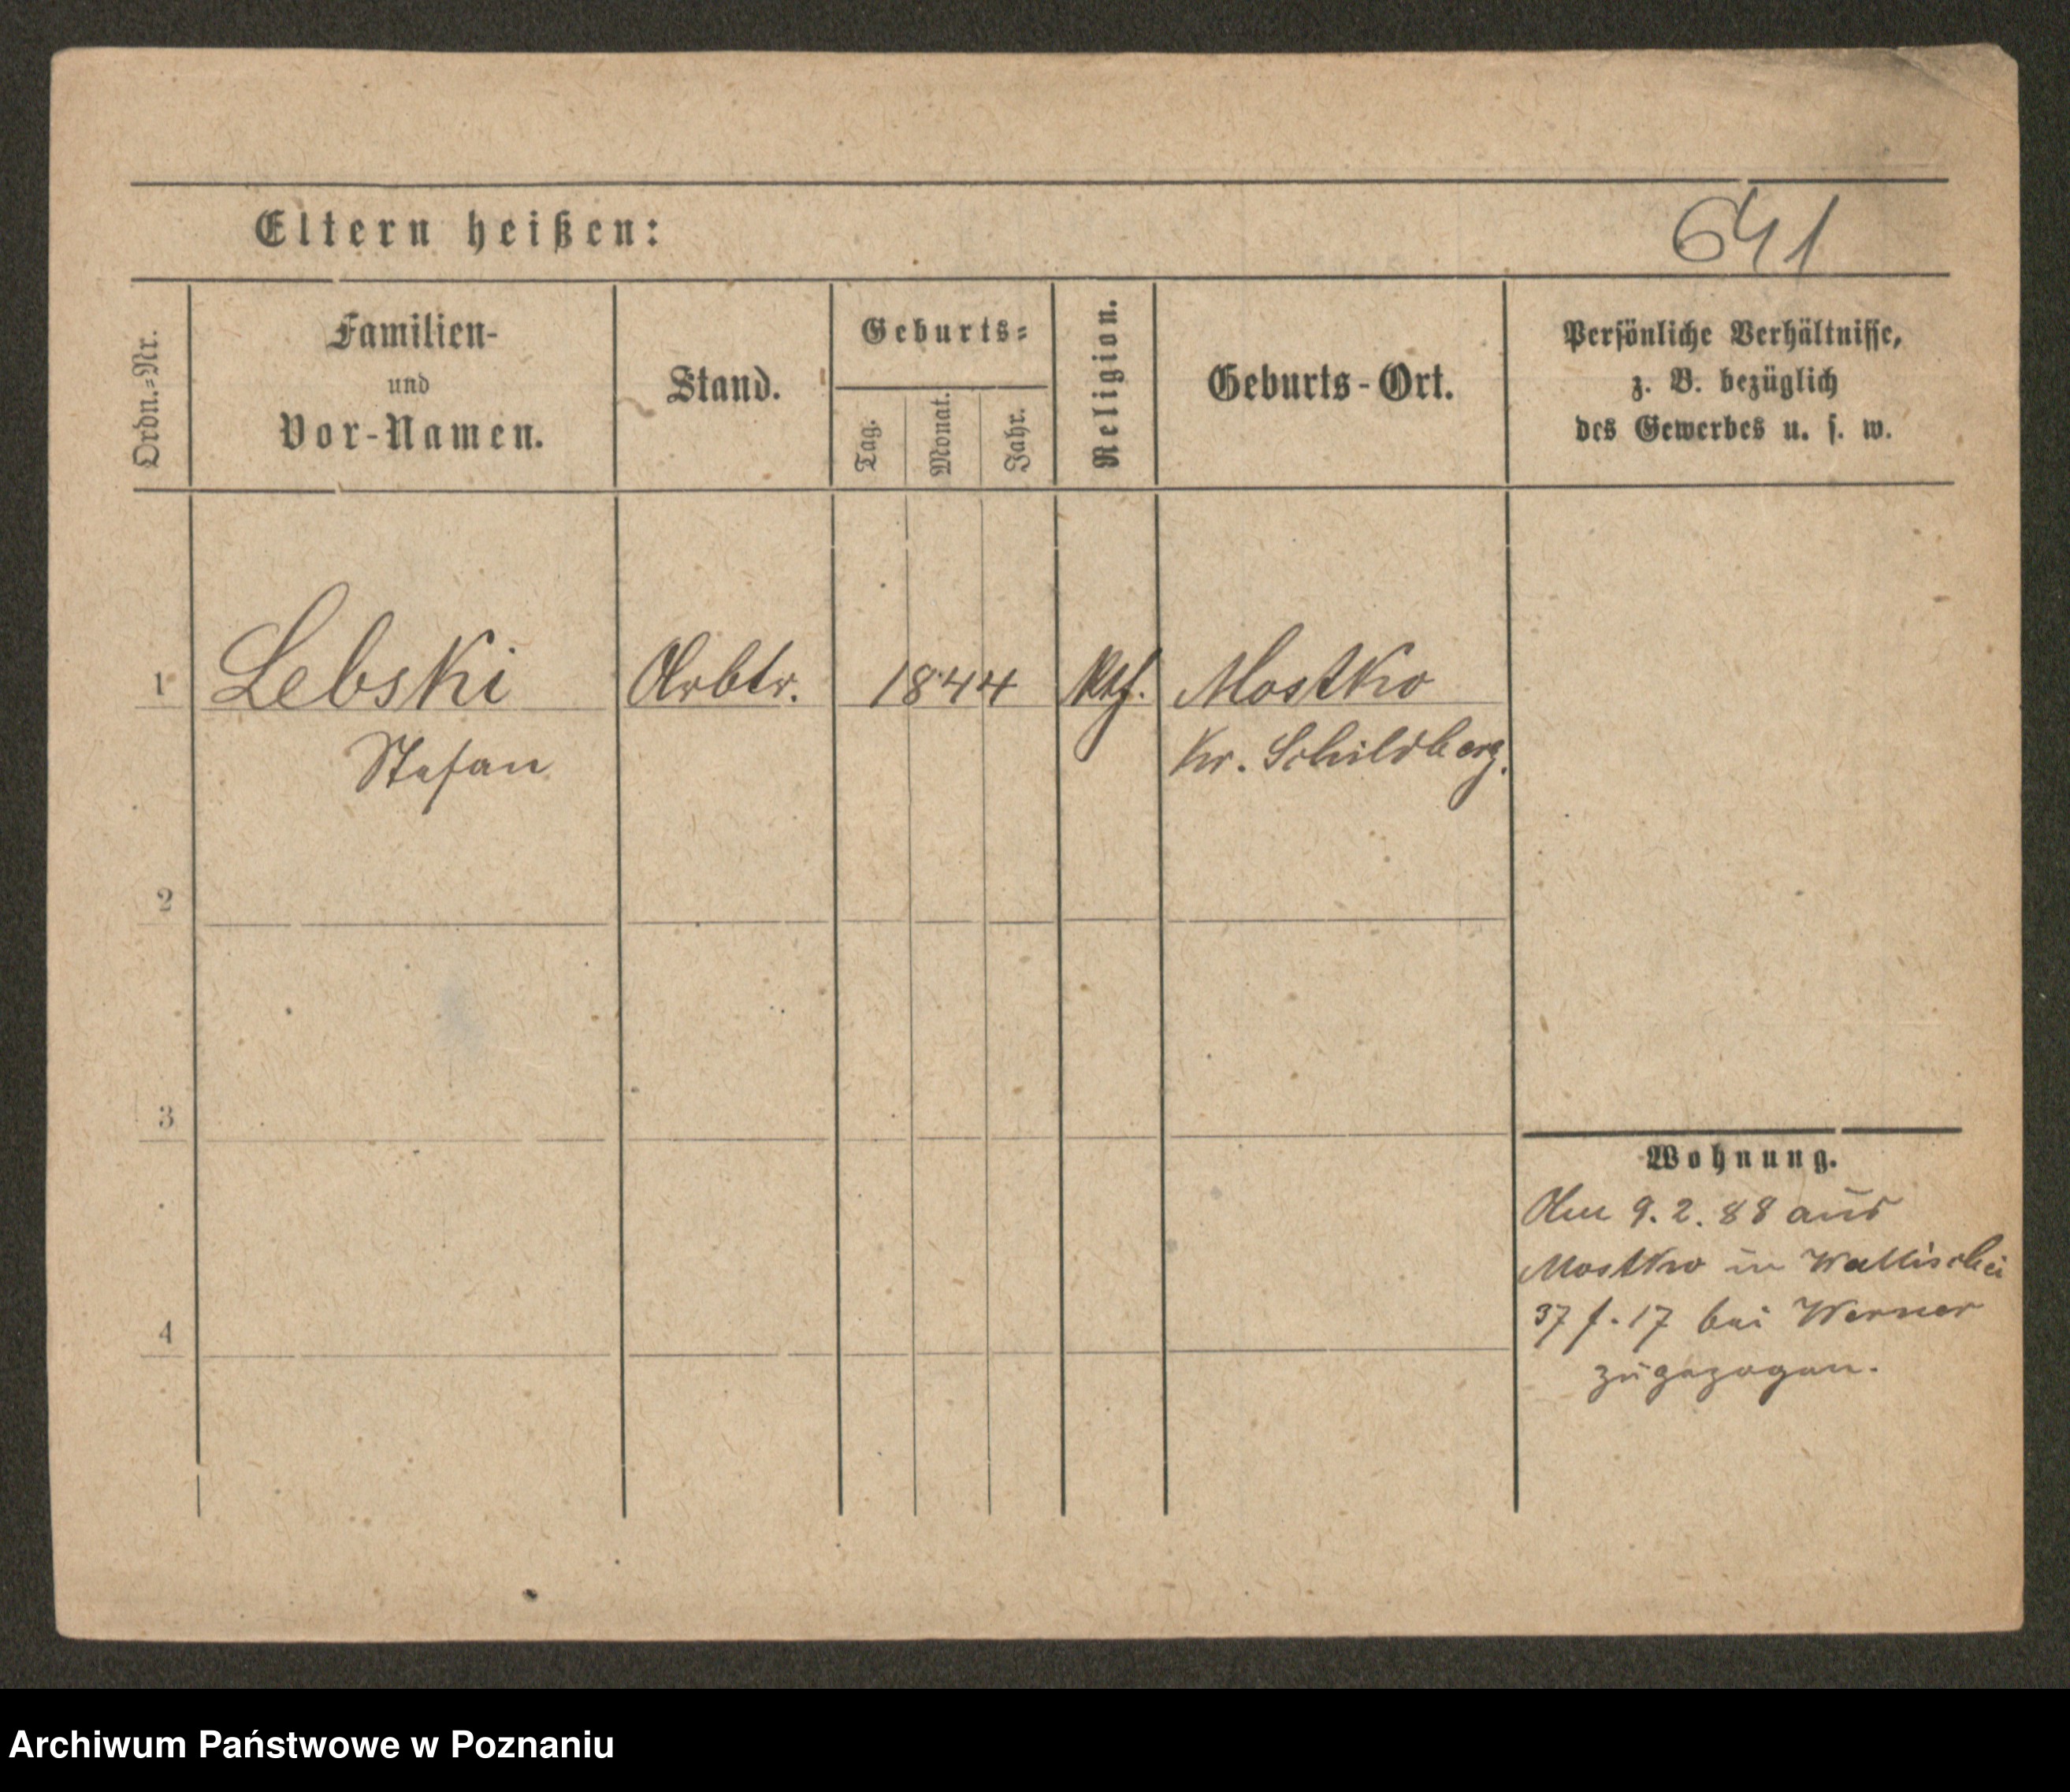 Eltern heißen:
641
Ordn.=Nr.
Familien-
und
Vor-Namen.
Stand.
Geburts=
Tag.
Monat.
Jahr.
Religion.
Geburts-Ort.
Persönliche Verhältnisse,
z. B. bezüglich
des Gewerbes u. s. w.
1 Lebski Arbtr. 1844 Ktf. Mostko
Stefan Kr. Schildberg.
2
3
Wohnung.
Am 9. 2. 88 aus
Mostko in Wallischei
37 f. 17 bei Werner
zugezogen.
4
Archiwum Państwowe w Poznaniu